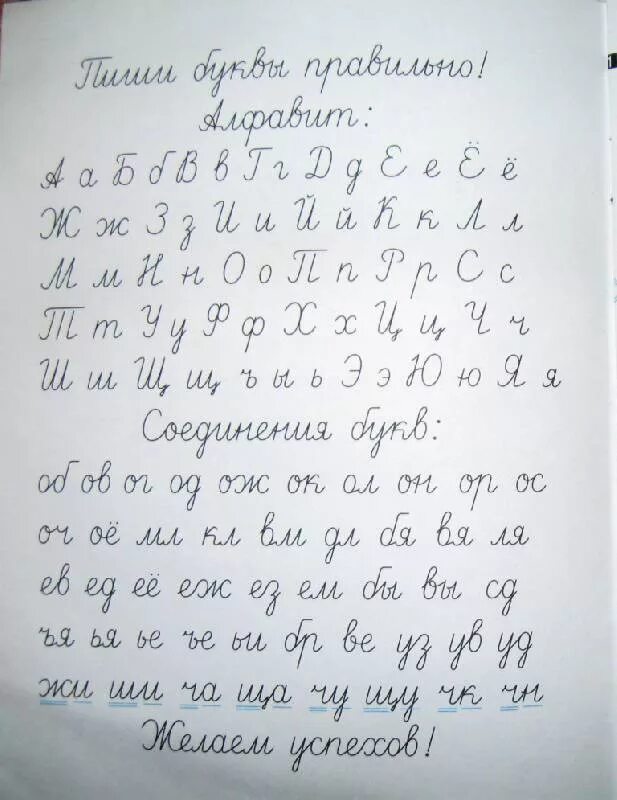 Пиши буквы правильно!
Алфавит:
А а Б б В в Г г Д д Е е Ё ё
Ж ж З з И и Й й К к Л л
М м Н н О о П п Р р С с
Т т У у Ф ф Х х Ц ц Ч ч
Ш ш Щ щ ъ ы ь Э э Ю ю Я я
Соединения букв:
об ов ог од ож ок ол он ор ос
оч оё мл кл вм дл бя вя ля
ев ед её еж ез ем бы вы сд
ъя ья ье ъе ьи бр ве уз ув уд
жи ши ча ща чу щу чк чн
Желаем успехов!